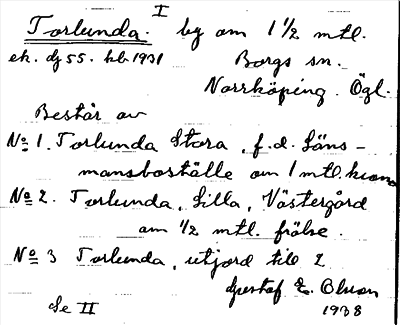 I
Torlunda. by om 1 1/2 mtl.
ek. bl 55. hb 1931 Borgs sn.
Norrköping. Ögl.
Består av
No 1. Torlunda Stora, f.d. Läns-
mansboställe om 1 mtl. krono
No 2. Torlunda, Lilla, Västergård
om 1/2 mtl. frälse.
No 3 Torlunda, utjord till 2
Gustaf E.
Se II 1938